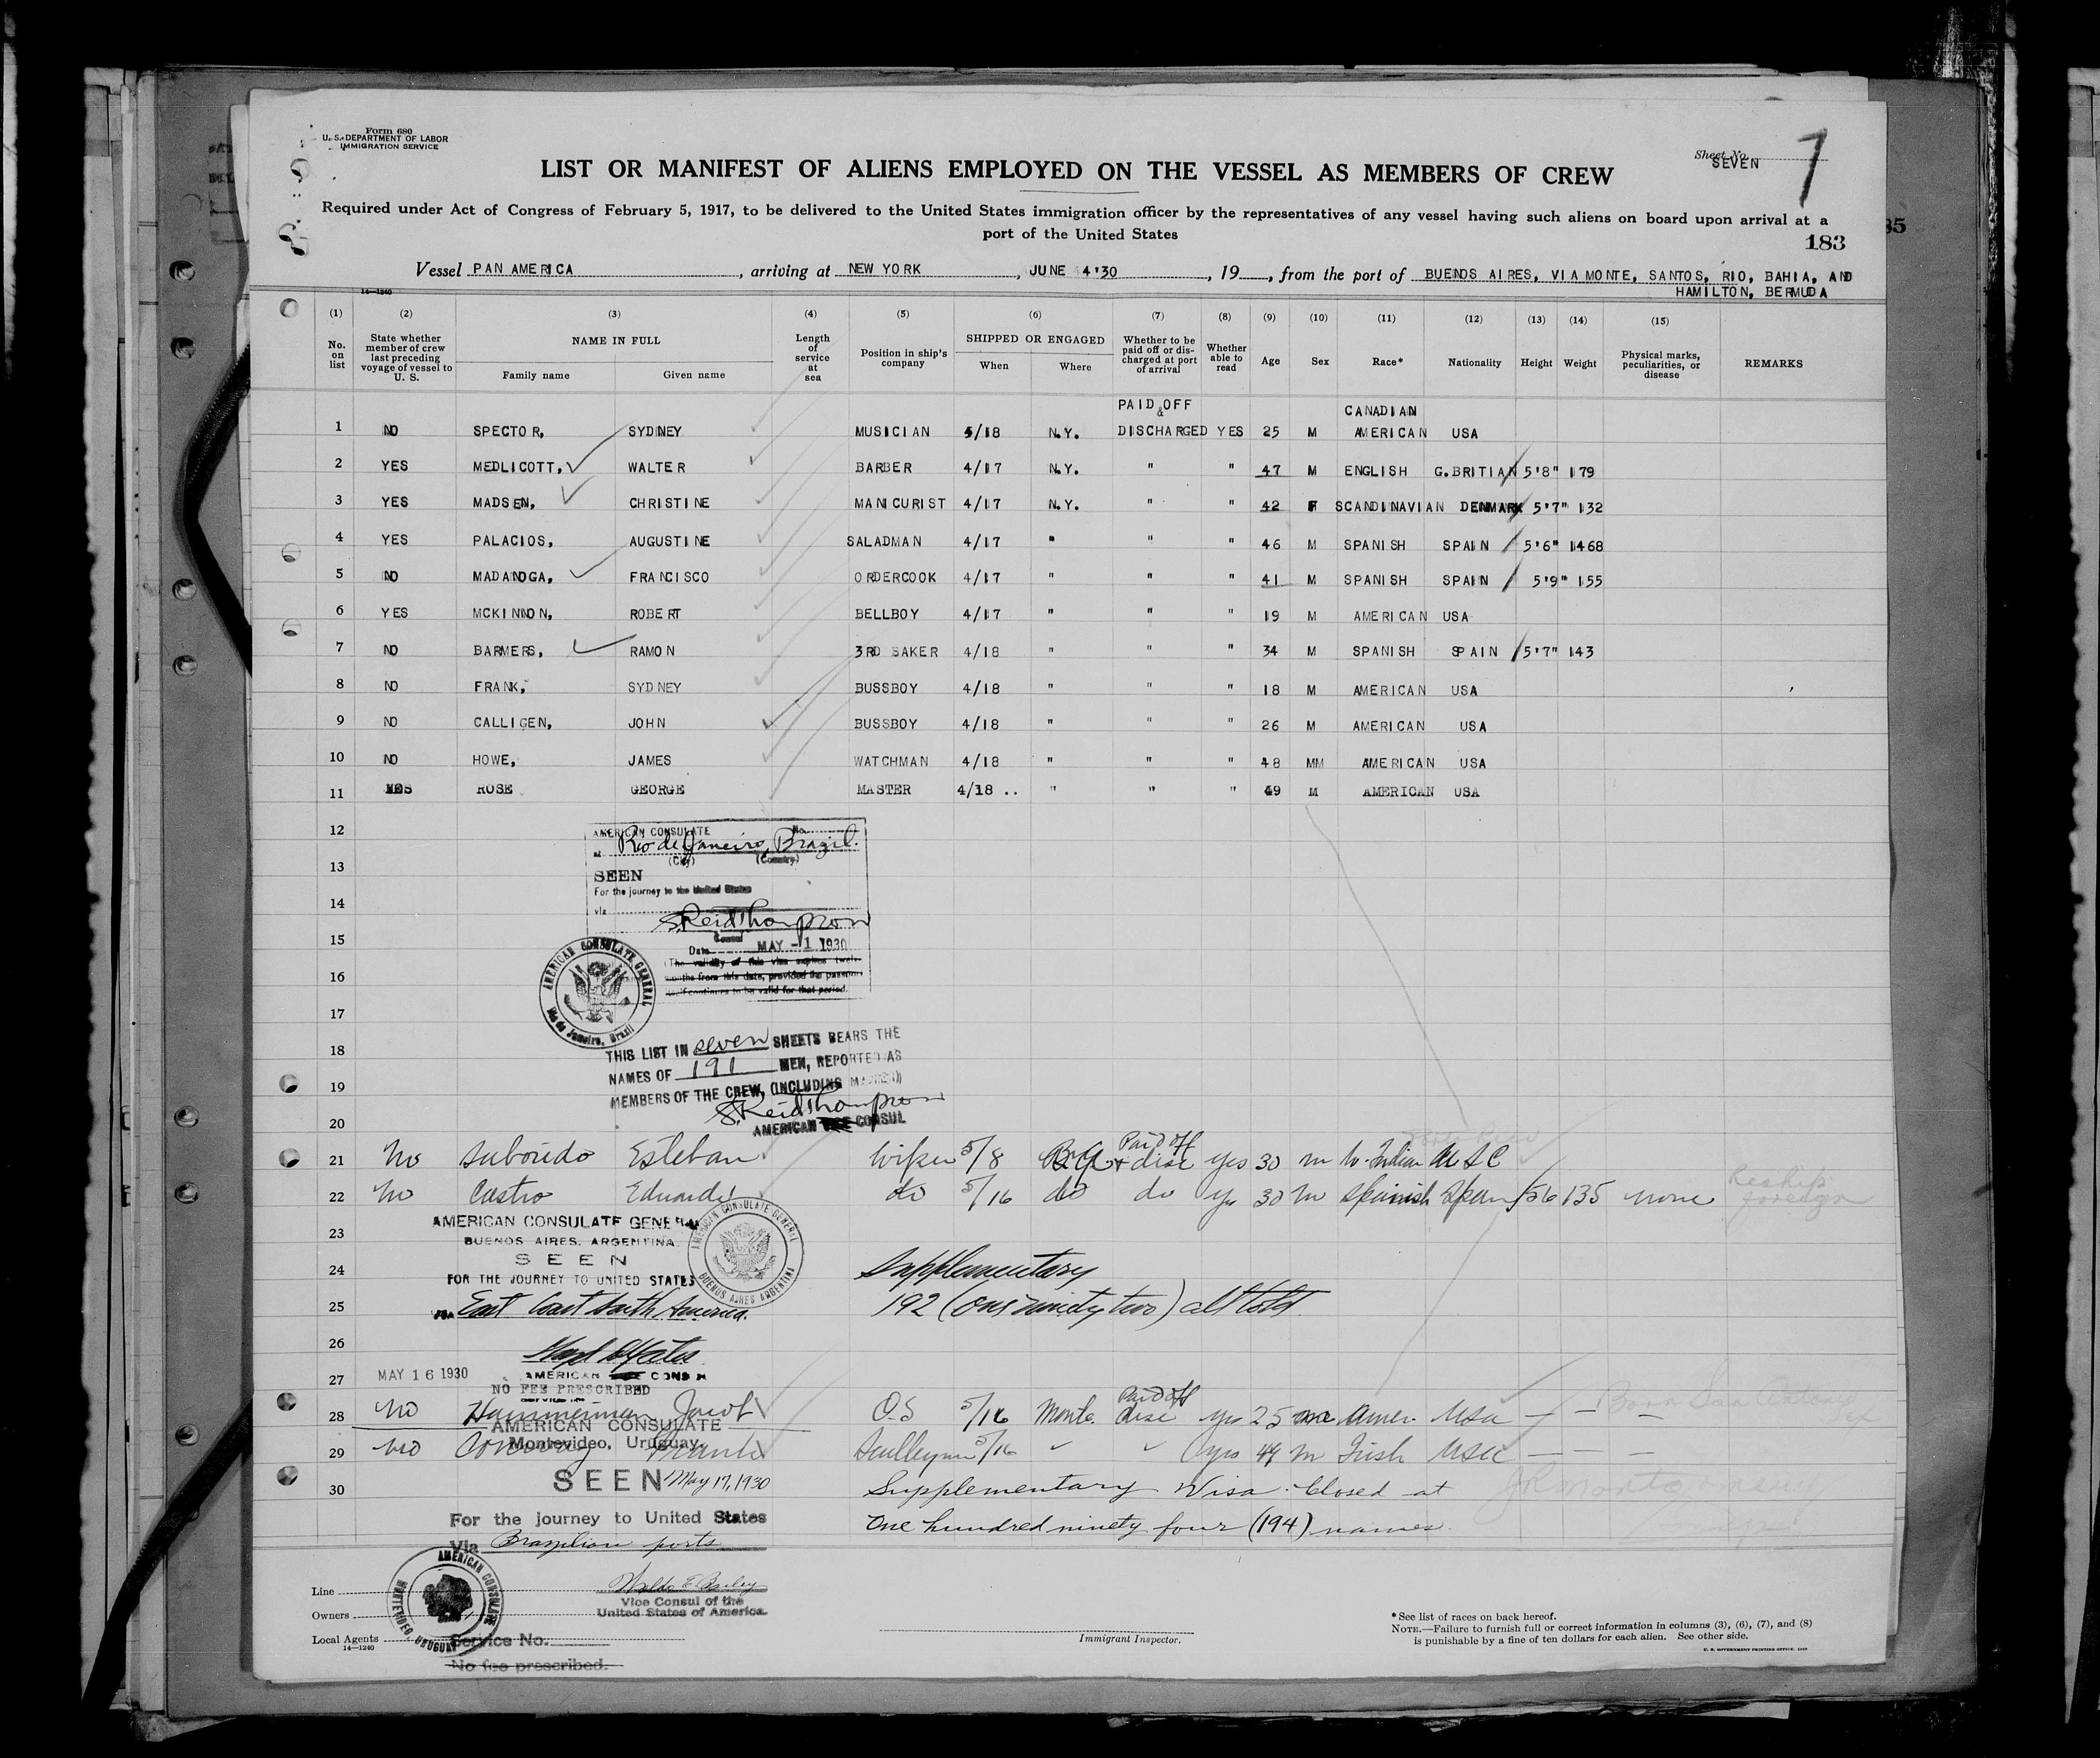 Form 680
U. S. DEPARTMENT OF LABOR
IMMIGRATION SERVICE
Sheet No.
SEVEN
7
LIST OR MANIFEST OF ALIENS EMPLOYED ON THE VESSEL AS MEMBERS OF CREW
Required under Act of Congress of February 5, 1917, to be delivered to the United States immigration officer by the representatives of any vessel having such aliens on board upon arrival at a
port of the United States
183
35
Vessel PAN AMERICA, arriving at NEW YORK, JUNE 4'30, 19, from the port of BUENOS AIRES, VIA MONTE, SANTOS, RIO, BAHIA, AND
HAMILTON, BERMUDA
14—1240
(1) (2) (3) (4) (5) (6) (7) (8) (9) (10) (11) (12) (13) (14) (15)
No. on list State whether member of crew last preceding voyage of vessel to U. S. NAME IN FULL Family name Given name Length of service at sea Position in ship's company SHIPPED OR ENGAGED When Where Whether to be paid off or discharged at port of arrival Whether able to read Age Sex Race* Nationality Height Weight Physical marks, peculiarities, or disease REMARKS
PAID & OFF CANADIAN
1 NO SPECTOR, SYDNEY MUSICIAN 5/18 N.Y. DISCHARGED YES 25 M AMERICAN USA
2 YES MEDLICOTT, WALTER BARBER 4/17 N.Y. " " 47 M ENGLISH G.BRITIAN 5'8" 179
3 YES MADSEN, CHRISTINE MANICURIST 4/17 N.Y. " " 42 F SCANDINAVIAN DENMARK 5'7" 132
4 YES PALACIOS, AUGUSTINE SALADMAN 4/17 " " " 46 M SPANISH SPAIN 5'6" 1468
5 NO MADANOGA, FRANCISCO ORDERCOOK 4/17 " " " 41 M SPANISH SPAIN 5'9" 155
6 YES MCKINNON, ROBERT BELLBOY 4/17 " " " 19 M AMERICAN USA
7 NO BARMERS, RAMON 3RD BAKER 4/18 " " " 34 M SPANISH SPAIN 5'7" 143
8 NO FRANK, SYDNEY BUSSBOY 4/18 " " " 18 M AMERICAN USA
9 NO CALLIGEN, JOHN BUSSBOY 4/18 " " " 26 M AMERICAN USA
10 NO HOWE, JAMES WATCHMAN 4/18 " " " 48 MM AMERICAN USA
11 ROSE GEORGE MASTER 4/18 .. " " " 49 M AMERICAN USA
12
AMERICAN CONSULATE No.
at Rio de Janeiro, Brazil.
(City) (Country)
13
SEEN
For the journey to the United States
14
via
S. Reid Thompson
Consul
15
Date MAY -1 1930
(The validity of this visa expires twelve
16
months from this date, provided the passport
itself continues to be valid for that period.
AMERICAN CONSULATE GENERAL
Rio de Janeiro, Brazil
17
18
THIS LIST IN seven SHEETS BEARS THE
NAMES OF 191 MEN, REPORTED AS
19
MEMBERS OF THE CREW, (INCLUDING MASTER)
S. Reid Thompson
20
AMERICAN VICE CONSUL
21 No Esteban Wiper 5/8 B.A. Paid off + disc yes 30 m W. Indian
22 No Castro Eduardo do 5/16 do do yes 30 m Spanish Spain 56 135 none Reship foreign
AMERICAN CONSULATE GENERAL
23
BUENOS AIRES, ARGENTINA
SEEN
24
FOR THE JOURNEY TO UNITED STATES
AMERICAN CONSULATE GENERAL
BUENOS AIRES ARGENTINA
Supplementary
25
VIA East Coast South America.
192 (one ninety two) all told
26
27
MAY 16 1930
AMERICAN CONSUL
NO FEE PRESCRIBED
28 No Jacob O.S 5/16 Monte. Paid off disc yes 25 Amer. USA
AMERICAN CONSULATE
Montevideo, Uruguay.
29 No Conway Frank 5/16 yes 44 m Irish USA
30
SEEN May 17, 1930
Supplementary Visa closed at
For the journey to United States
One hundred ninety four (194) names.
Via Brazilian ports
AMERICAN CONSULATE
MONTEVIDEO, URUGUAY
Line
Owners
Local Agents
14—1240
Vice Consul of the
United States of America.
Service No.
No fee prescribed.
Immigrant Inspector.
*See list of races on back hereof.
NOTE.—Failure to furnish full or correct information in columns (3), (6), (7), and (8)
is punishable by a fine of ten dollars for each alien. See other side.
U. S. GOVERNMENT PRINTING OFFICE